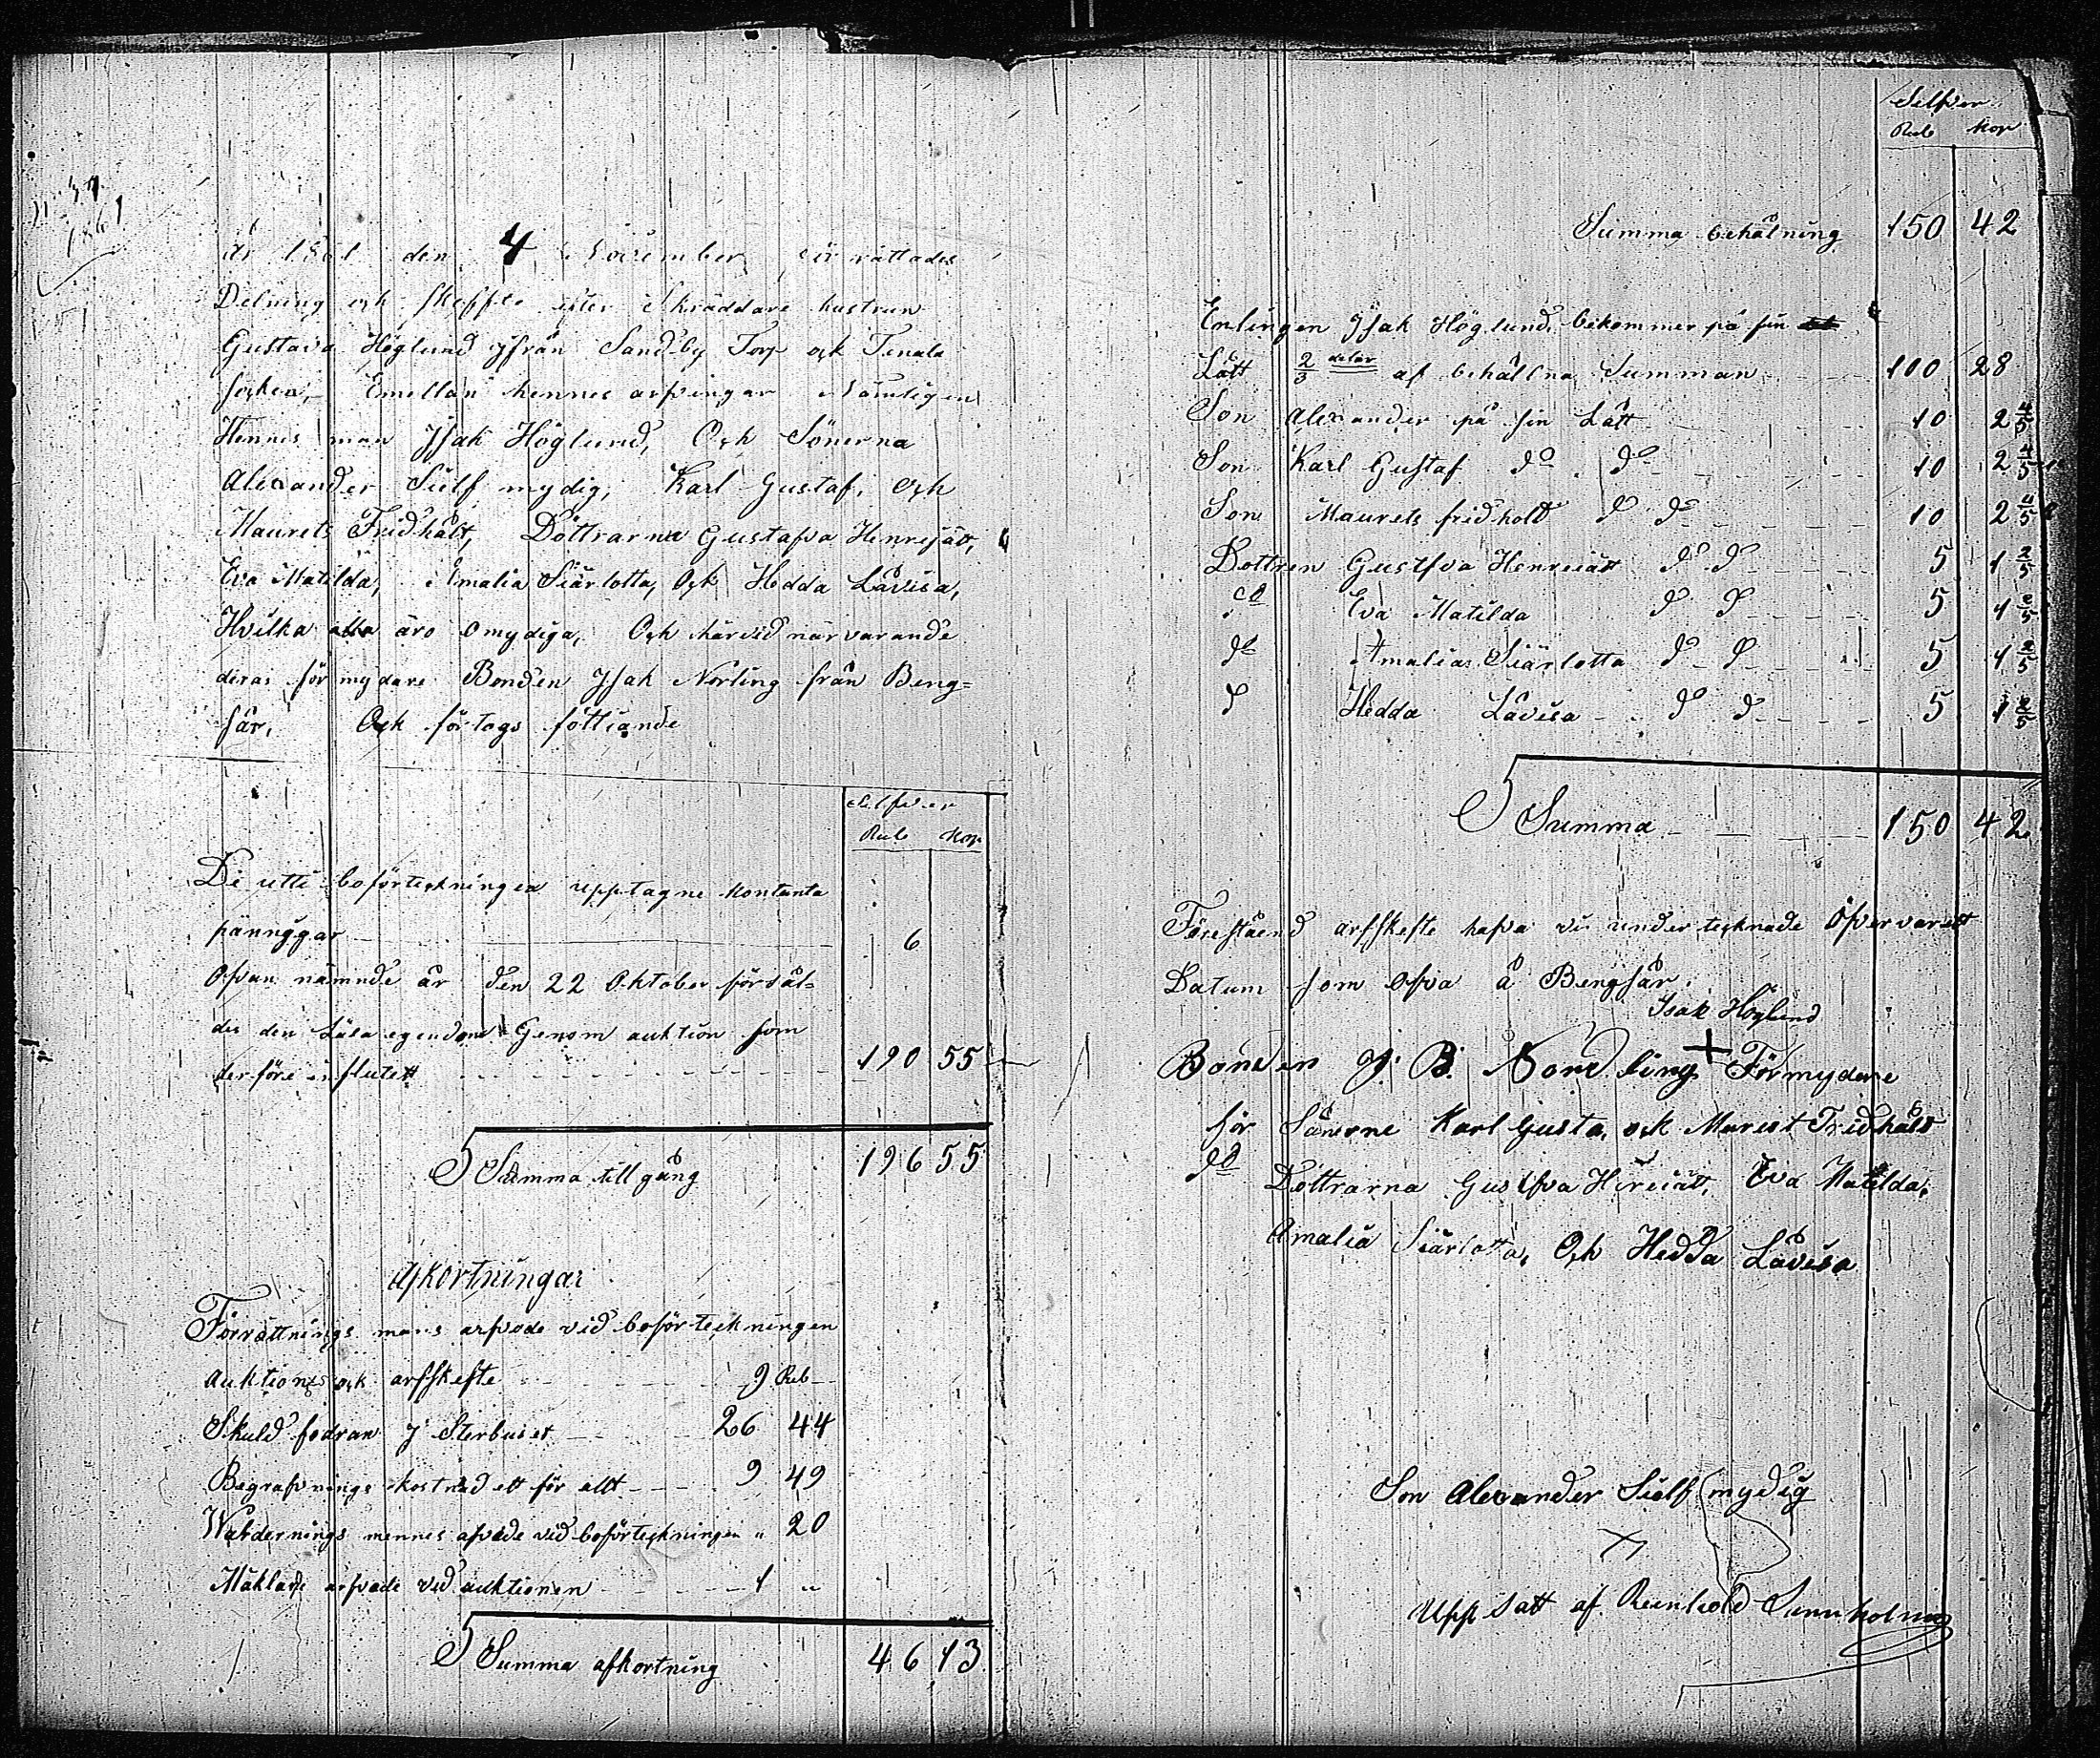 N 37
1861
År 1861 den 4 November för rättades
Delning och skeffte efter Skräddare hustrun
Gustava Höglund Ifrån Sandby Torp och Tenala
socken, Emellan hennes arfvingar Nämligen
Hennes man Isak Höglund, Och Sönerna
Alexander Sielf mydig, Karl Gustaf, och
Maurets Fridhålt, Döttrarna Gustafva Henrejätt,
Eva Matilda, Amalia Siärlotta, Och Hedda Låvisa,
Hvilka alla äro Omydiga, Och härvid närvarande
deras för mydare Bonden Isak Norling från Beng=
sår, Och förtogs föttiande
Selfver
Rub Kop
De utti boförteckningen upptagne kontanta
pännggar 6
Ofvan nämnde år den 22 Oktober försål=
des den Lösa egendom Genom auktion som
derföre influtett 190 55
Summa till gång 196 55
Afkortningar
Förrättnings mans arfvode vid boförteckningen
Auktions och arfskefte 9 Rub
Skuld fodran I Sterbuset 26 44
Begrafvnings kostnad ett för allt 9 49
Wärdernings mennes afvode vid boförteckningen " 20
Mäklare arfvode vid auktionen 1 "
Summa afkortning 46 13
Selfver
Rub Kop
Summa behålning 150 42
Enlingen Isak Höglund, bekommer på sin
Lått 2/3 delar af behållna Summan 100 28
Son Alexander på sin Lått 10 2 4/5
Son Karl Gustaf do do 10 2 4/5
Son Maurets fridholt do do 10 2 4/5
Dottren Gustfva Henreiätt do do 5 1 2/5
do Eva Matilda do do 5 1 2/5
do Amalia Siärlotta do do 5 1 2/5
do Hedda Låvisa do do 5 1 2/5
Summa 150 42
Föreståend arfskefte hafva vi under tecknade Öfvervarett
Datum som ofva å Bengsår.
Isak Höglund
Bonden I. B. Nordling + Förmydare
för Sönerne Karl Gusta, och Murest Fridhålt
do Döttrarna Gustfva Hireiätt, Eva Matilda,
Amalia Siärlotta, Och Hedda Låvisa
Son Alexander Sielf mydig
X
Upp satt af Reinhold Sunnholm